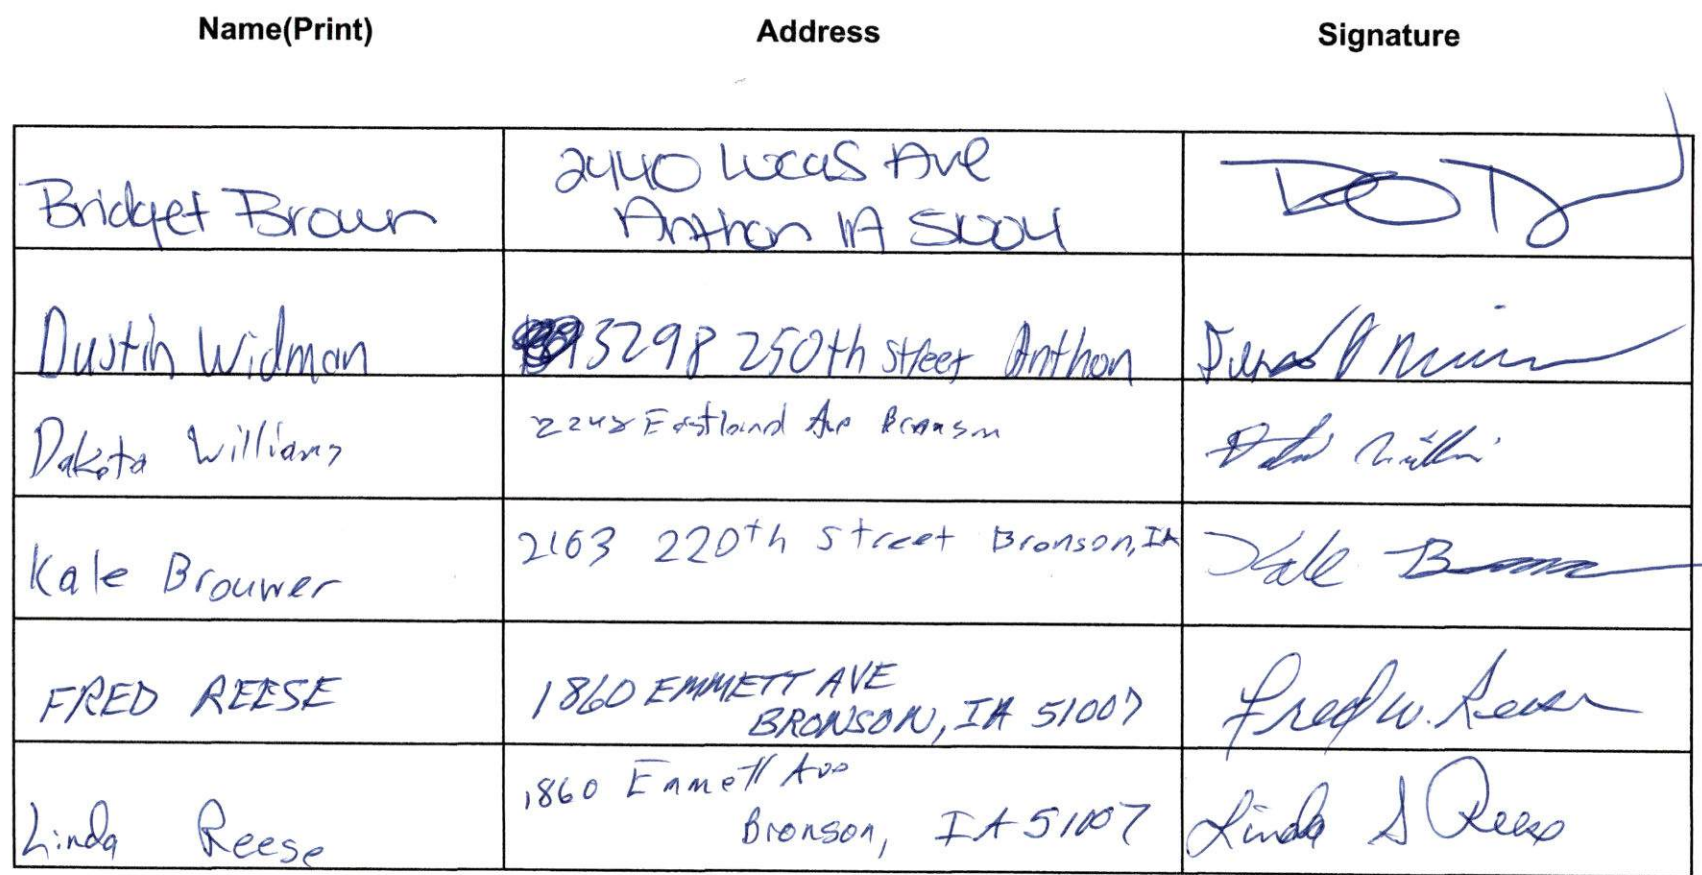 Name(Print) Address Signature
Bridget Brown
2440 Lucas Ave
Anthon IA 51004
Dustin Widman 3298 250th Street Anthon
Dakota Williams 2248 Eastland Ave Bronson
Kale Brouwer 2163 220th Street Bronson, IA Kale
FRED REESE
1860 EMMETT AVE
BRONSON, IA 51007
Fred W. Reese
Linda Reese
1860 Emmett Ave
Bronson, IA 51007
Linda S Reese